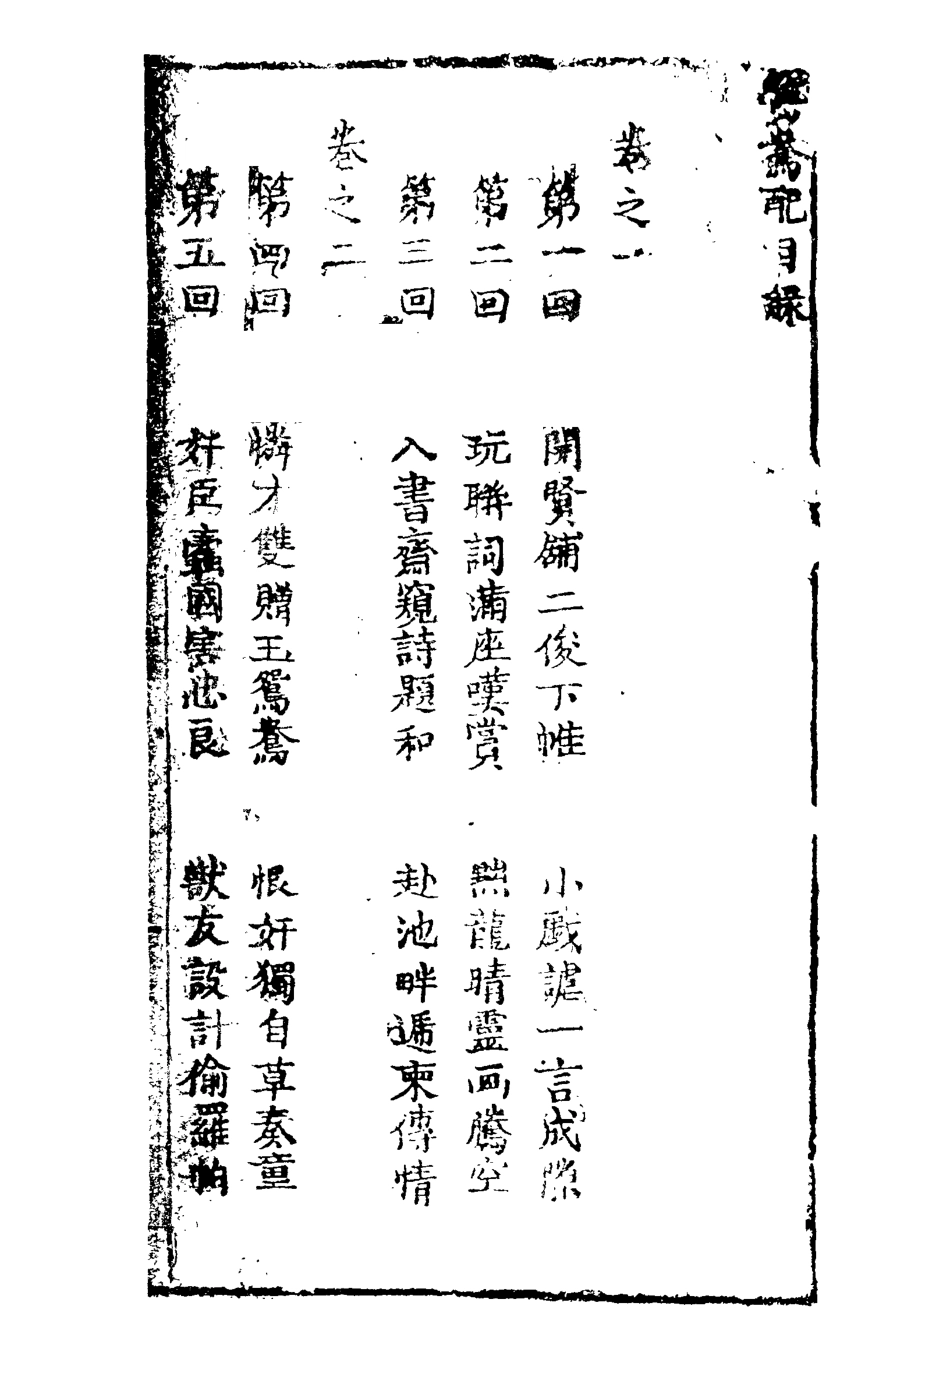 鴦配目錄
卷之一
第一回 開賢舖二俊下帷 小戲謔一言成隙
第二回 玩聯詞滿座嘆賞 㸃龍晴靈画騰空
第三回 入書齋窺詩題和 赴池畔遞柬傳情
卷之二
第四回 憐才雙贈玉鴛鴦 恨奸獨自草奏章
第五回 奸臣蠹國害忠良 獸友設計偷羅帕